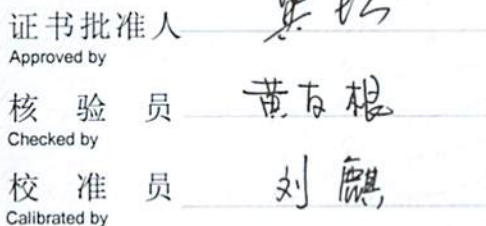 证书批准人
Approved by
核验员 黄友根
Checked by
校准员 刘麒
Calibrated by